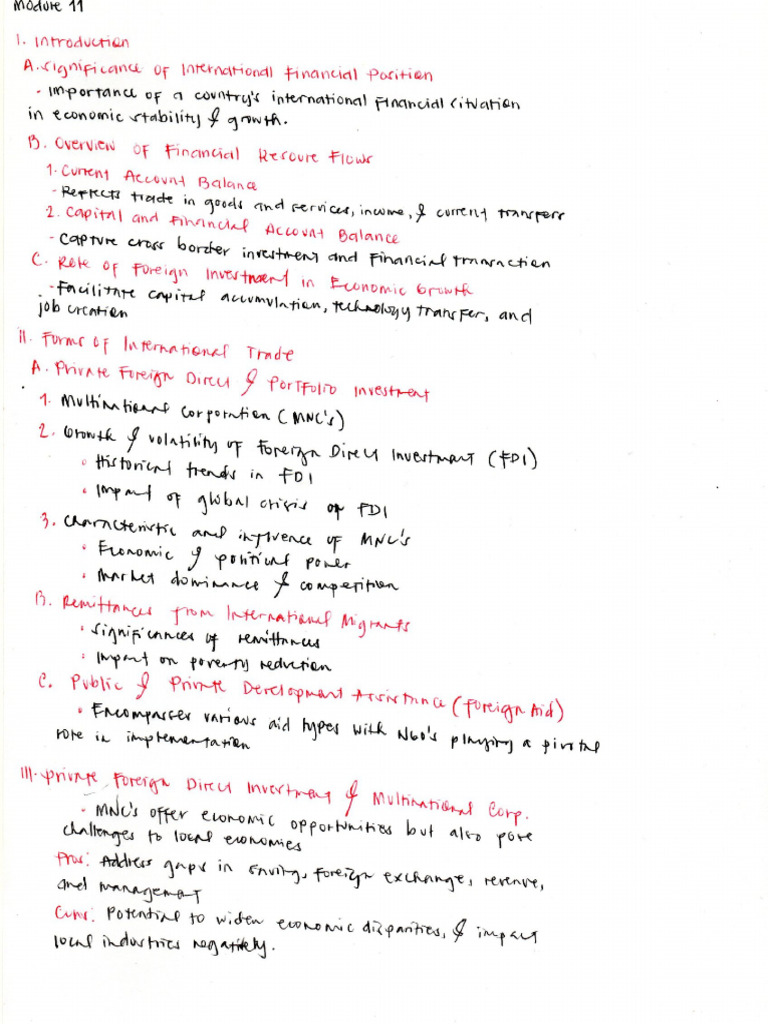 Module 11
I. Introduction
A. Significance of International Financial Position
- Importance of a country's international financial situation
in economic stability & growth.
B. Overview of Financial Resoure Flows
1. Current Account Balance
- Reflects trade in goods and services, income, & current transfers
2. Capital and Financial Account Balance
- Capture cross border investment and financial transaction
C. Role of Foreign Investment in Economic Growth
- Facilitate capital accumulation, technology transfer, and
job creation
II. Forms of International Trade
A. Private Foreign Direct & Portfolio Investment
1. Multinational Corporation (MNC's)
2. Growth & volatility of Foreign Direct Investment (FDI)
• Historical trends in FDI
• Impact of global crisis of FDI
3. Characteristic and influence of MNC's
• Economic & political power
• Market dominance & competition
B. Remittances from International Migrants
• Significances of remittances
• Impact on poverty reduction
C. Public & Private Development Assistance (Foreign Aid)
• Encompasses various aid types with NGO's playing a pivotal
role in implementation
III. Private Foreign Direct Investment & Multinational Corp.
• MNC's offer economic opportunities but also pose
challenges to local economies
Pros: Address gaps in saving, foreign exchange, revenue,
and management
Cons: Potential to widen economic disparities, & impact
local industries negatively.